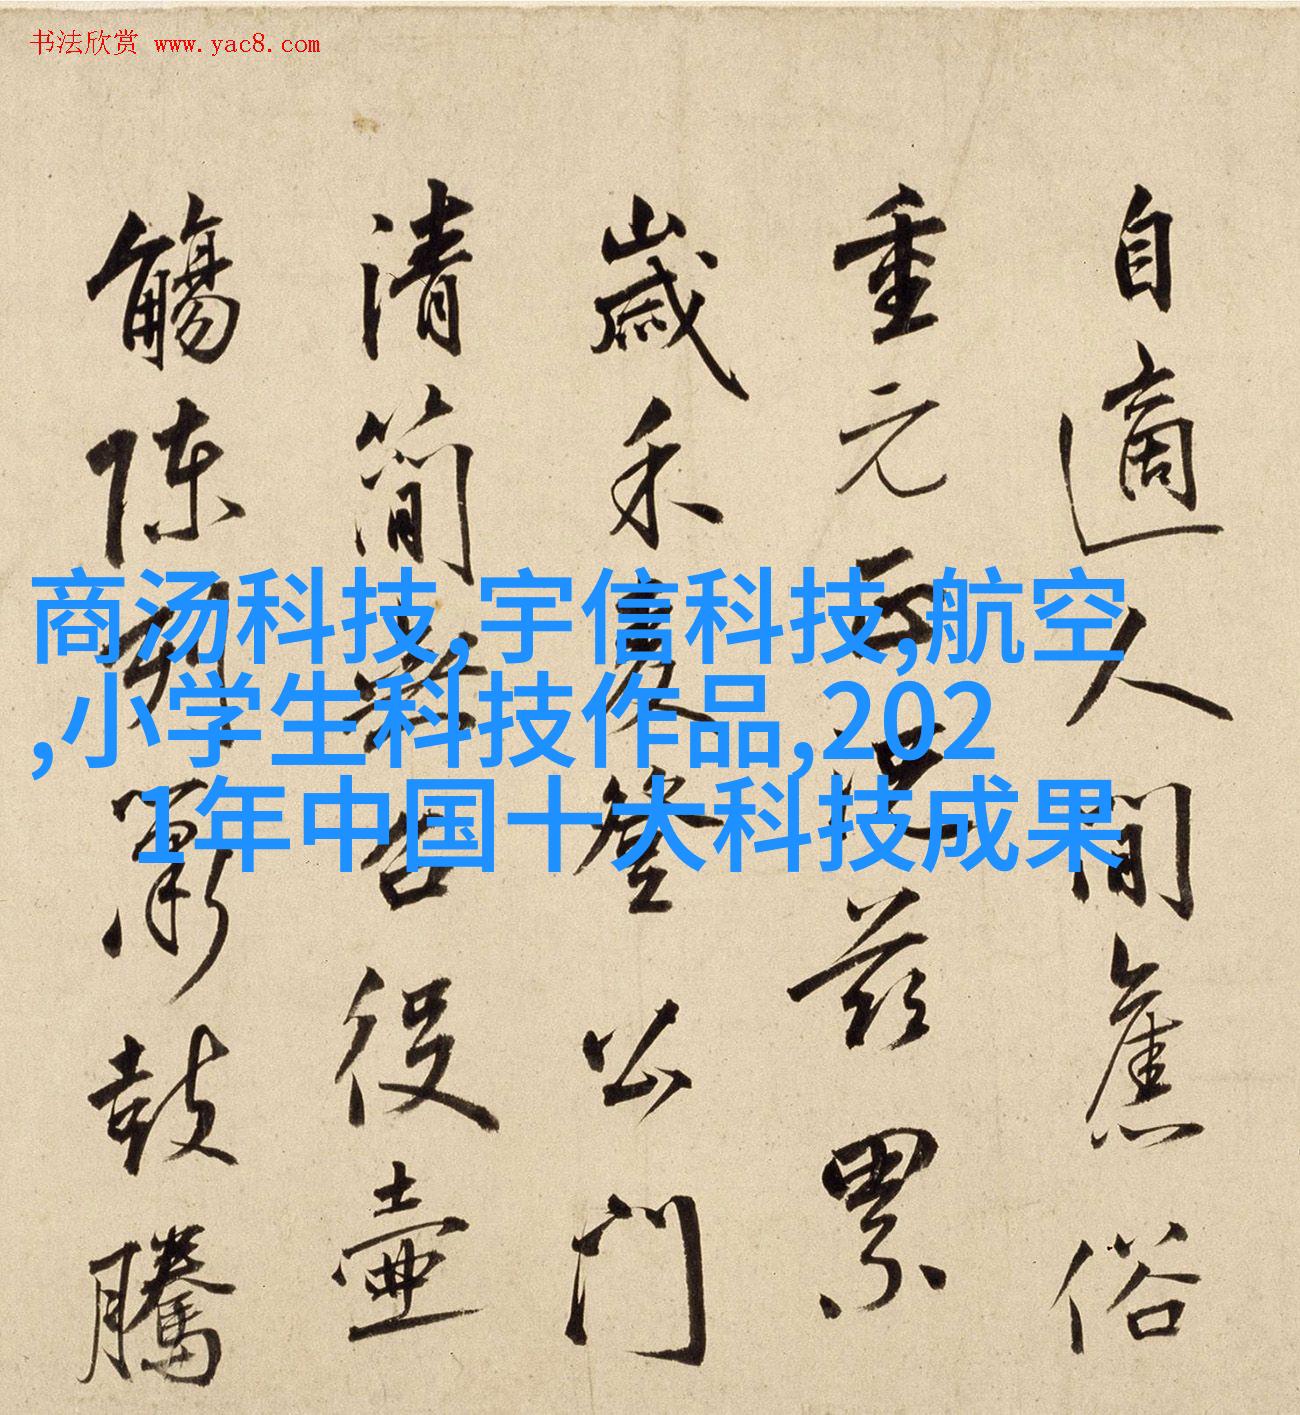 书法欣赏 www.yac8.com
自適人間舊俗
重元正況茲累
歲禾登公門
清簡無役壺
觴陳列鼓騰
商汤科技,宇信科技,航空
,小学生科技作品,202
1年中国十大科技成果